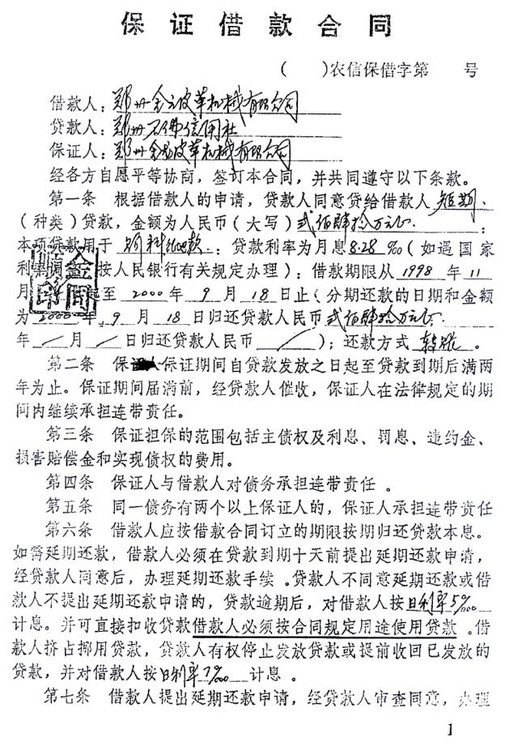 保证借款合同
( )农信保借字第 号
借款人：郑州金元皮革机械有限公司
贷款人：郑州石佛信用社
保证人：郑州金龙皮革机械有限公司
经各方自愿平等协商，签订本合同，并共同遵守以下条款。
第一条 根据借款人的申请，贷款人同意贷给借款人 短期
(种类) 贷款，金额为人民币(大写) 贰佰肆拾万元
本项贷款用于 ；贷款利率为月息8.28‰(如遇国家
利率 按人民银行有关规定办理)；借款期限从1998年11
月 至2000年9月18日止(分期还款的日期和金额
为2000年9月18日归还贷款人民币 贰佰肆拾万元
年 月 日归还贷款人民币 )；还款方式 转账。
第二条 保证人保证期间自贷款发放之日起至贷款到期后满两
年为止。保证期间届满前，经贷款人催收，保证人在法律规定的期
间内继续承担连带责任。
第三条 保证担保的范围包括主债权及利息、罚息、违约金、
损害赔偿金和实现债权的费用。
第四条 保证人与借款人对债务承担连带责任。
第五条 同一债务有两个以上保证人的，保证人承担连带责任
第六条 借款人应按借款合同订立的期限按期归还贷款本息。
如需延期还款，借款人必须在贷款到期十天前提出延期还款申请，
经贷款人同意后，办理延期还款手续。贷款人不同意延期还款或借
款人不提出延期还款申请的，贷款逾期后，对借款人按日利率5‱
计息。并可直接扣收贷款借款人必须按合同规定用途使用贷款。借
款人挤占挪用贷款，贷款人有权停止发放贷款或提前收回已发放的
贷款，并对借款人按日利率7‱计息。
第七条 借款人提出延期还款申请，经贷款人审查同意，办理
合同
1